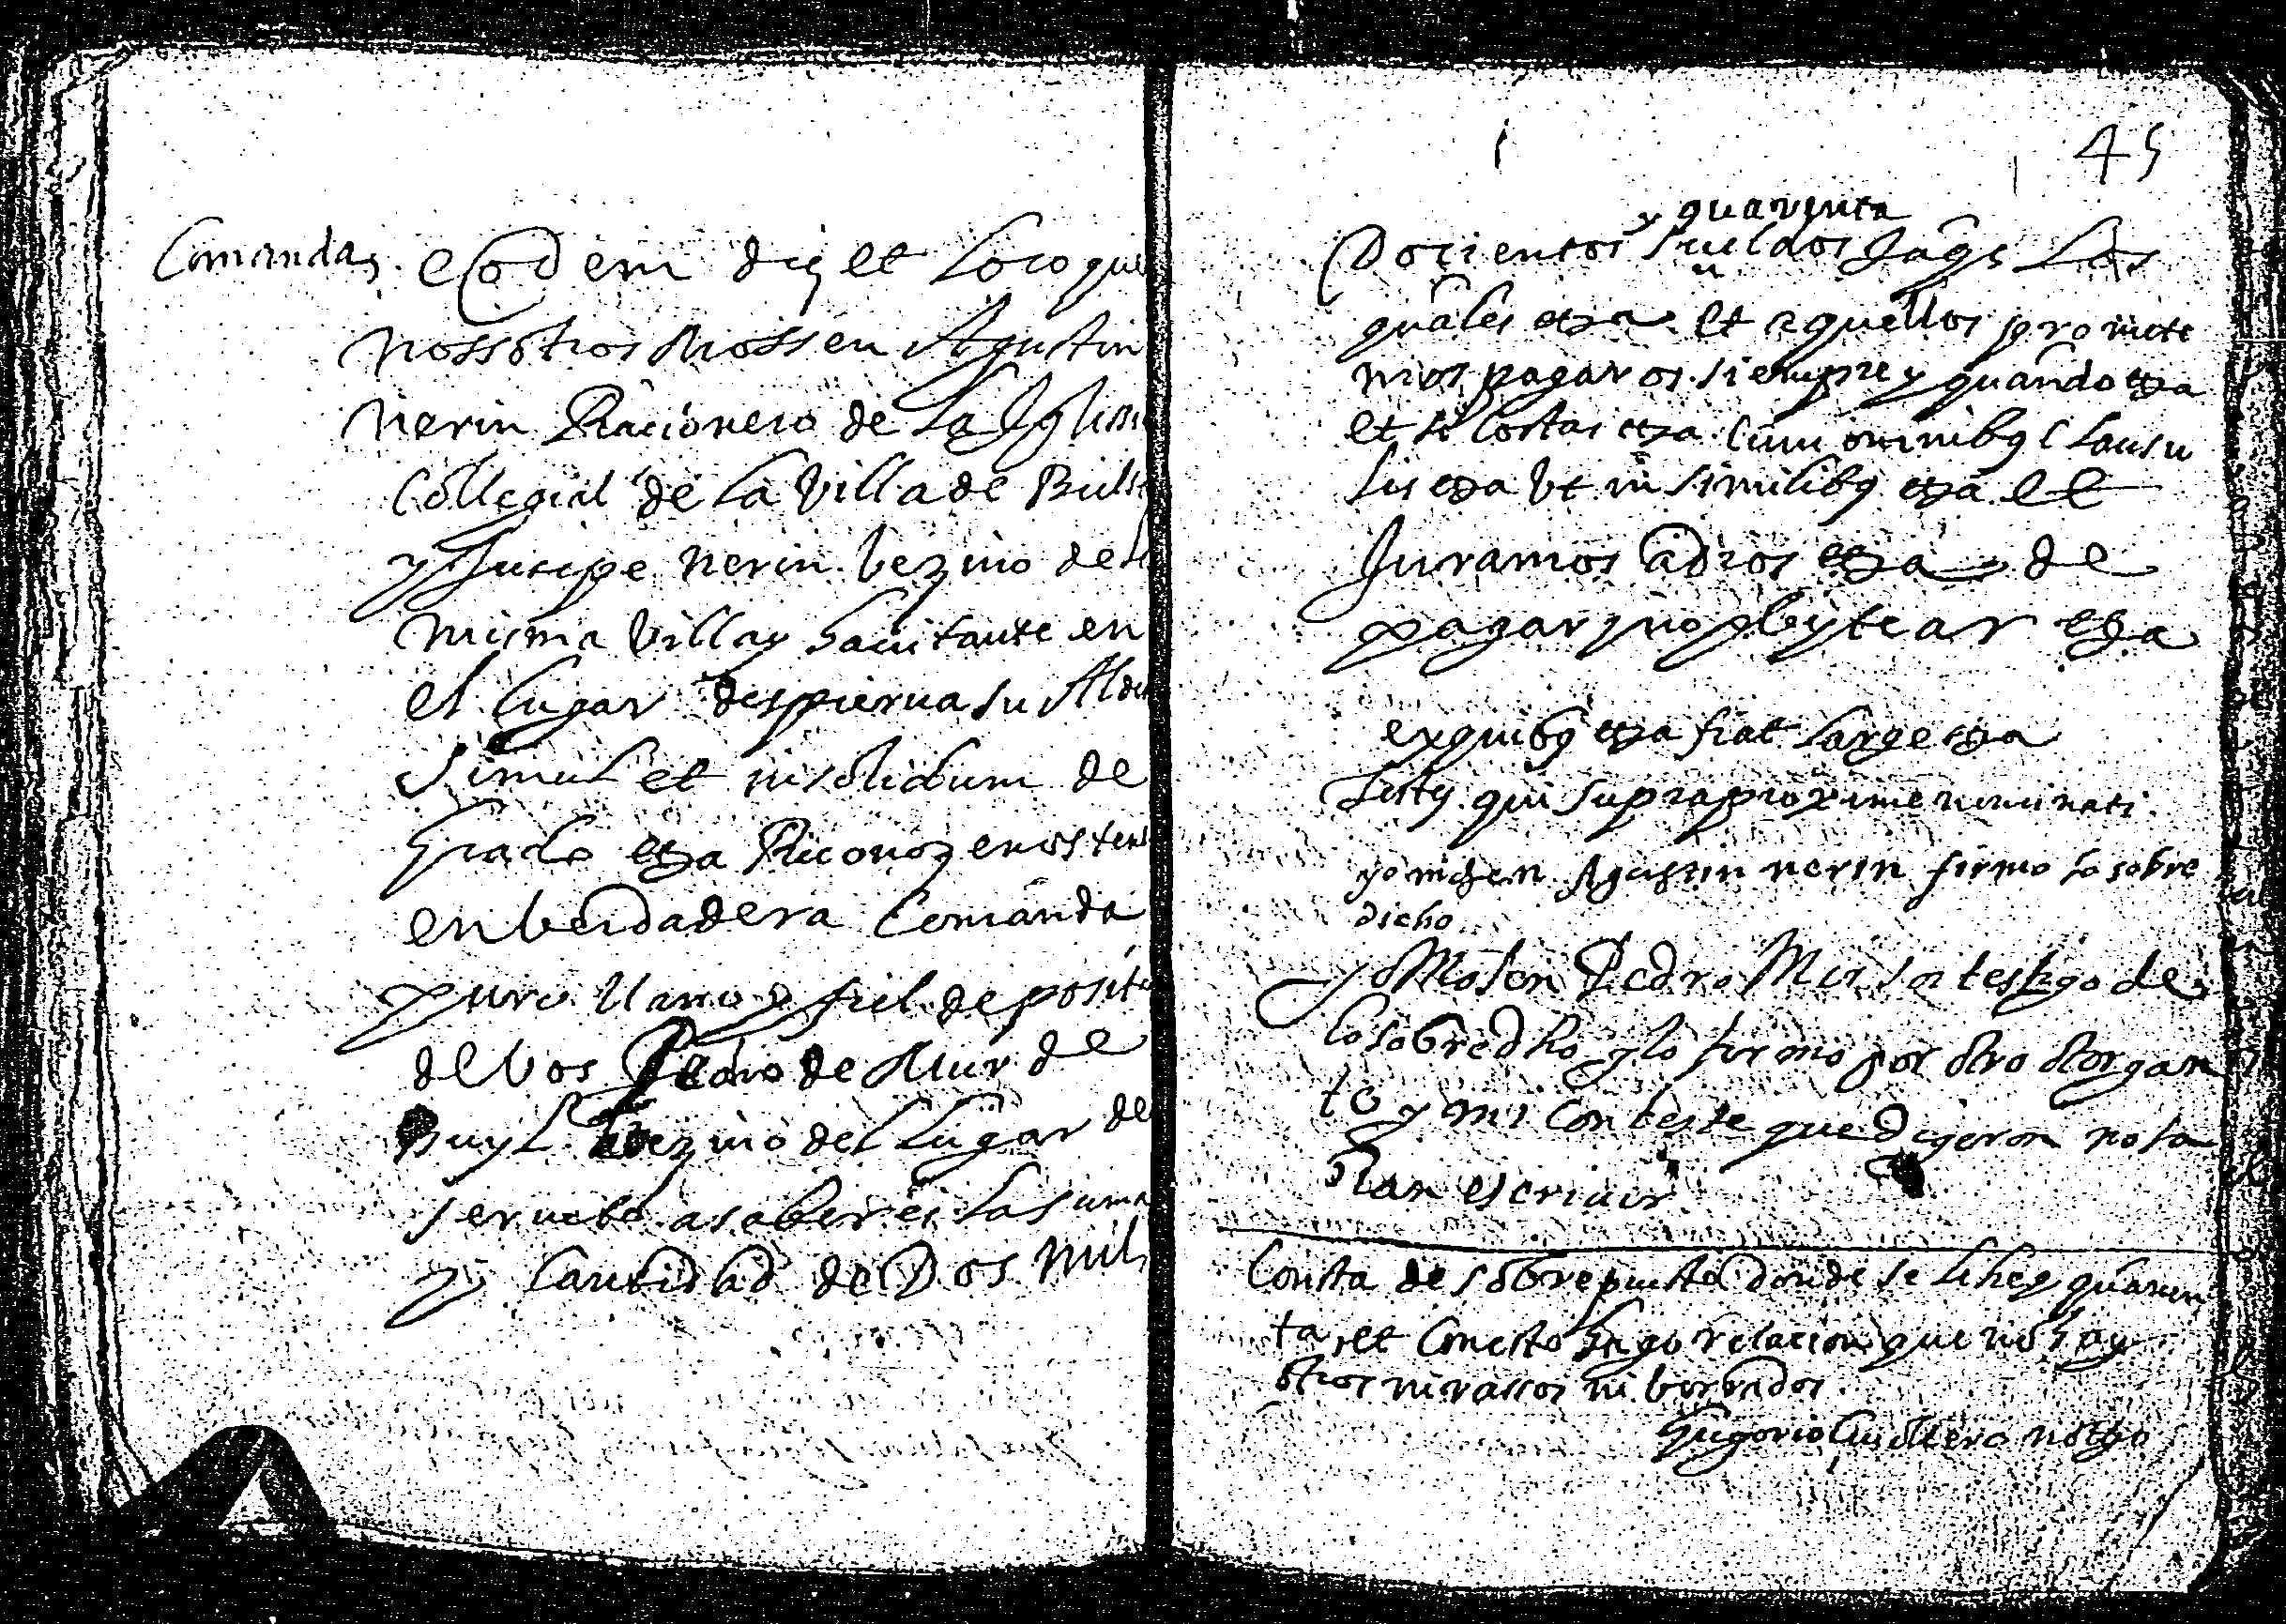 Comandas. eodem die et loco que
nossotros Mossen Agustin
nerin Racionero de la Iglesi
Collegial de la Villa de Buil
y Jusepe nerin bezino de la
misma Villa y havitante en
el lugar despierna su Alde
simul et insolidum de
Grado etza Reconozemos ten
en berdadera Comanda
puro llano y fiel deposito
de bos Pedro de Mur de
Puyl bezino del Lugar de
serveto a saber es la suma
y Cantidad de Dos mil
45
y quarenta
Docientos sueldos Jaqs Los
quales etza et aquellos promete
mos pagaros siempre y quando etza
et si Costas etza Cum omnibus Clausu
lis etza ut in similibus etza et
Juramos a dios etza de
pagar y no pleytear etza
ex quibus etza fiat large etza
Testes qui supra proxime nominati
yo mosen Agustin nerin firmo lo sobre
dicho
yo Mosen Pedro Mir soi testigo de
lo sobredho y lo firmo por otro otorgan
te y mi conteste que digeron no sa
bian escriuir
Consta de sobrepuesto donde se lihe y quaren
ta et Con esto hago relacion que no hay
otros ni rassos ni borrados
Gregorio notro